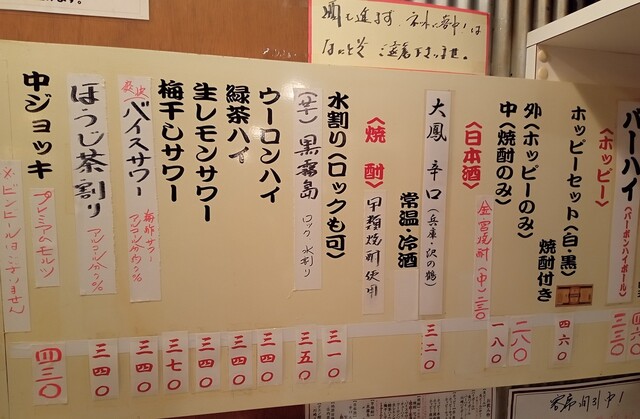 バーハイ
(バーボンハイボール)
〈ホッピー〉
三三〇
ホッピーセット(白・黒)
焼酎付き
四六〇
外(ホッピーのみ)
二八〇
中(焼酎のみ)
一八〇
金宮焼酎(中)二三〇
〈日本酒〉
大鳳 辛口(兵庫・沢の鶴)
三二〇
常温・冷酒
〈焼酎〉
甲類焼酎使用
水割り(ロックも可)
三一〇
(芋)黒霧島 ロック 水割り
三五〇
ウーロンハイ
三四〇
緑茶ハイ
三四〇
生レモンサワー
三四〇
梅干しサワー
三七〇
バイスサワー
梅酢サワー
三四〇
ほうじ茶割り
三四〇
中ジョッキ
プレミアムモルツ
四三〇
※ビンビールはございません